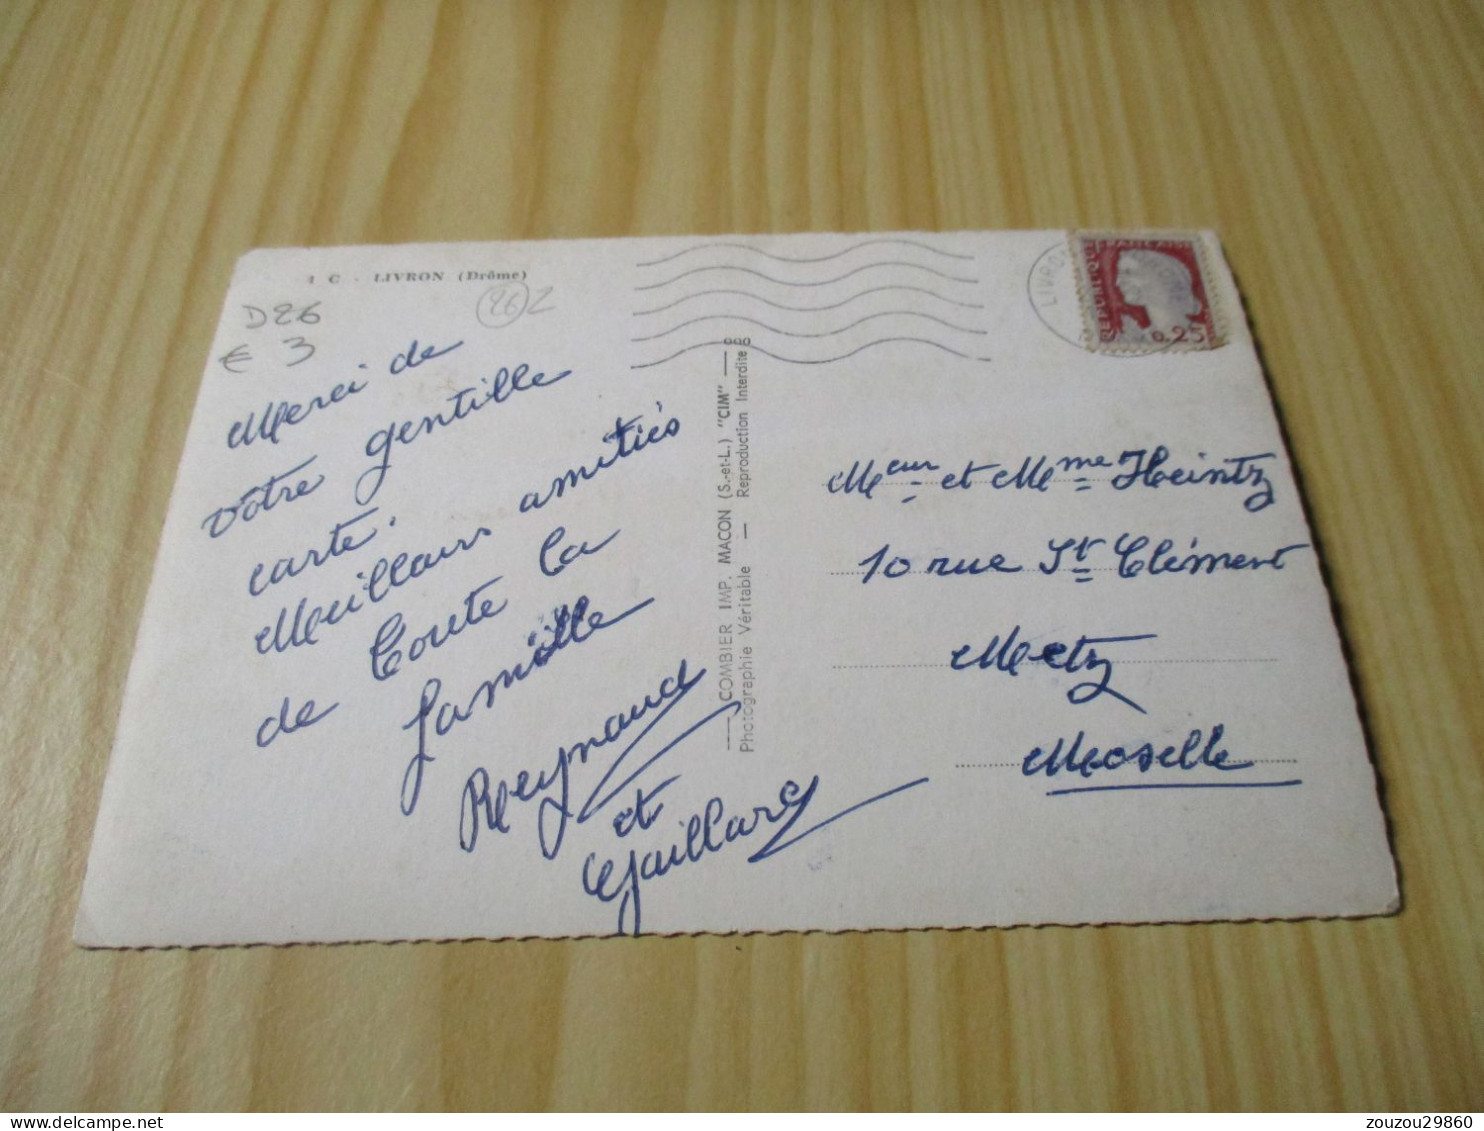 1 C - LIVRON (Drôme)
D26
€ 3
26 Z
Merci de
votre gentille
carte.
Meilleurs amitiés
de toute la
famille
Reynaud
et
Gaillard
COMBIER IMP. MACON (S.-et-L.) "CIM"
Photographie Véritable — Reproduction Interdite
LIVRON
REPUBLIQUE FRANÇAISE
0.25
Meur et Mme Heintz
10 rue St Clément
Metz
Moselle
delcampe.net
zouzou29860